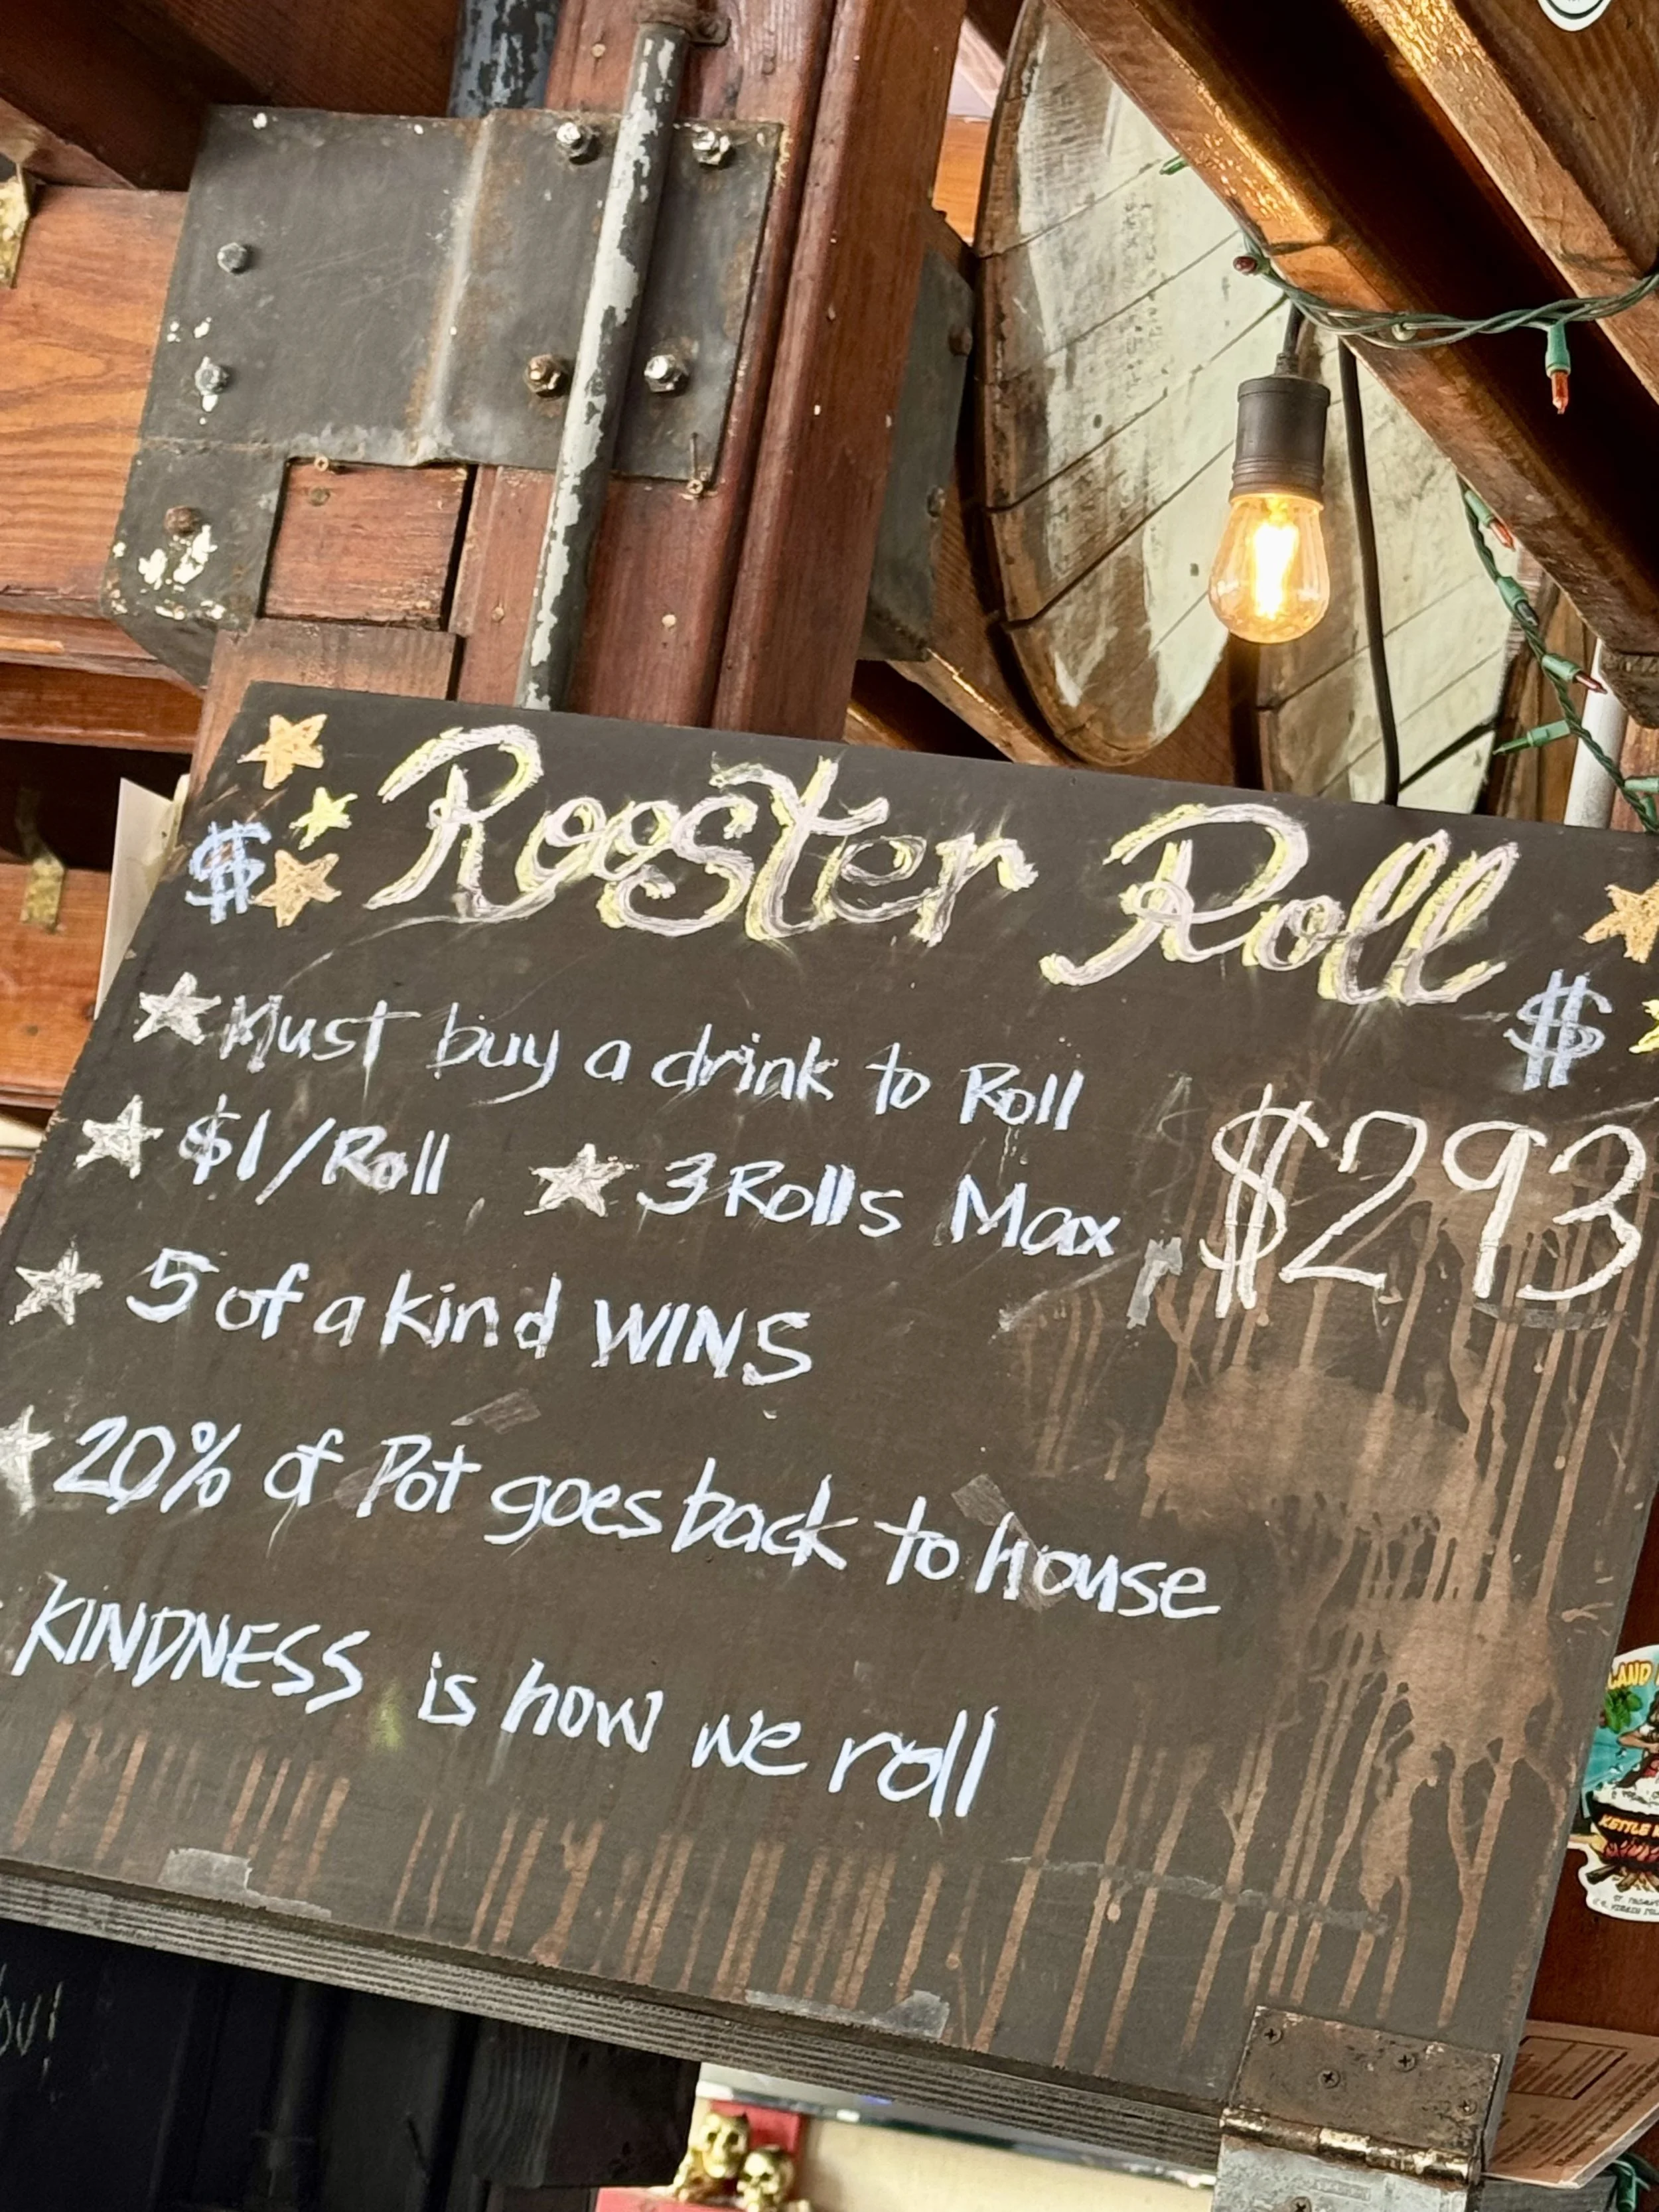 $ Rooster Roll $
Must buy a drink to Roll
$1/Roll 3 Rolls Max $293
5 of a kind WINS
20% of Pot goes back to house
KINDNESS is how we roll
KETTLE